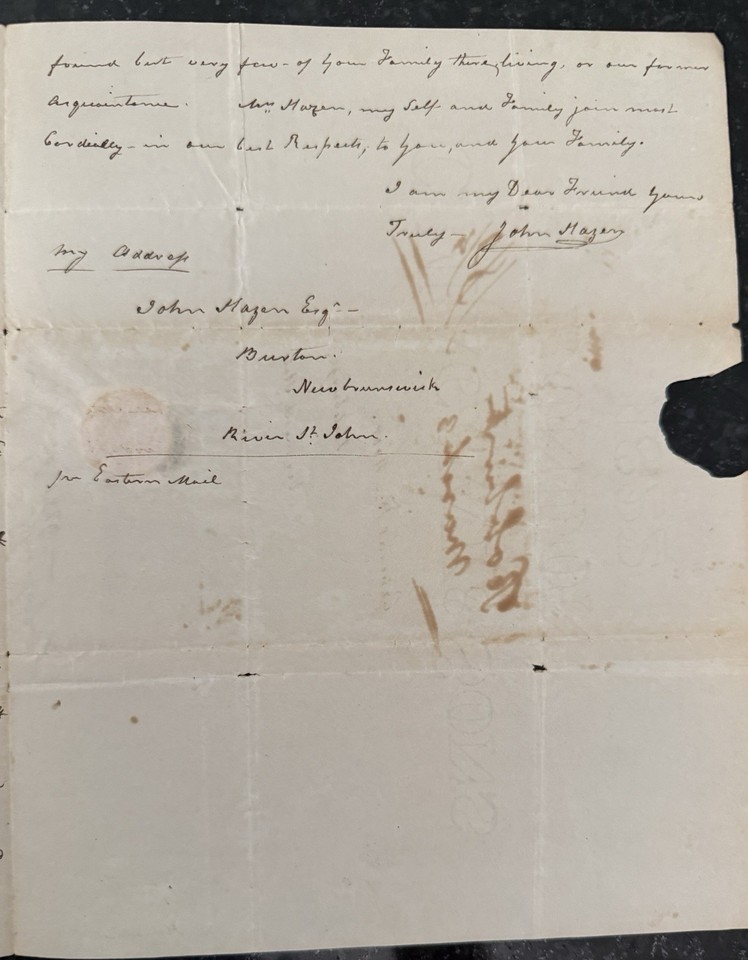 found but very few – of your Family there living, or our former
Acquaintance. Mrs Hazen, my Self and Family join most
Cordially – in our best Respects, to you, and your Family.
I am my Dear Friend yours
Truly – John Hazen
My Address
John Hazen Esqr –
Burton.
Newbrunswick
River St. John.
pr Eastern Mail